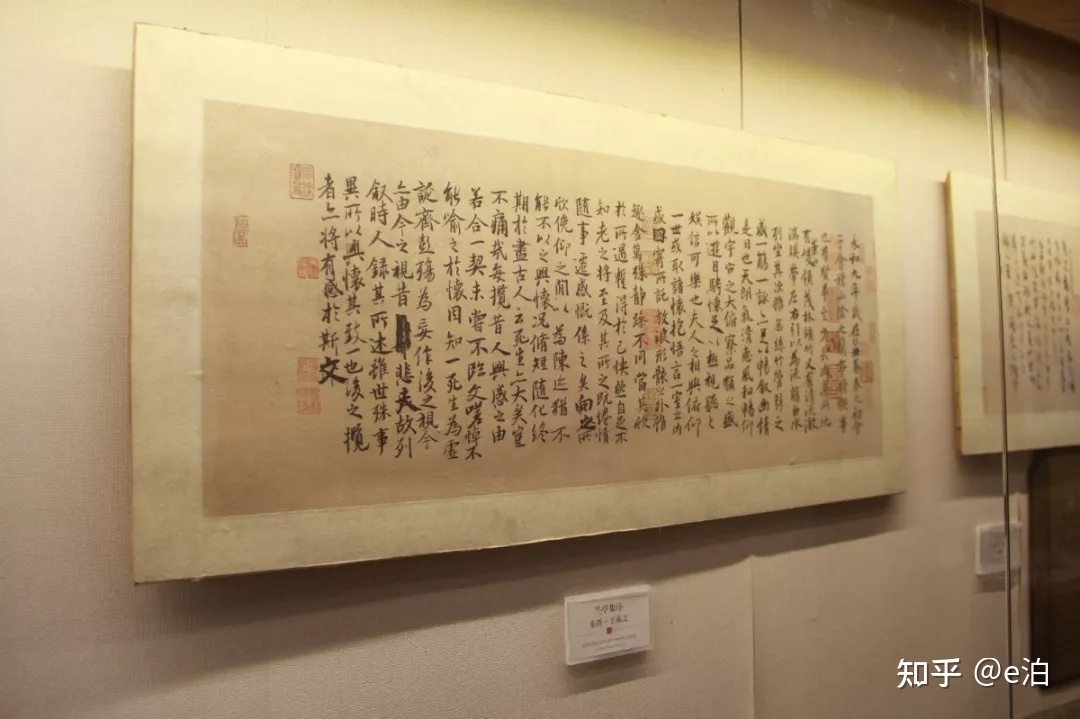 永和九年歲在癸丑暮春之初會
于會稽山陰之蘭亭脩稧事
也群賢畢至少長咸集此地
有崇山峻領茂林脩竹又有清流激
湍暎帶左右引以為流觴曲水
列坐其次雖無絲竹管弦之
盛一觴一詠亦足以暢敘幽情
是日也天朗氣清惠風和暢仰
觀宇宙之大俯察品類之盛
所以遊目騁懷足以極視聽之
娛信可樂也夫人之相與俯仰
一世或取諸懷抱悟言一室之內
或因寄所託放浪形骸之外雖
趣舍萬殊靜躁不同當其欣
於所遇暫得於己快然自足不
知老之將至及其所之既惓情
隨事遷感慨係之矣向之所
欣俛仰之閒以為陳迹猶不
能不以之興懷況脩短隨化終
期於盡古人云死生亦大矣豈
不痛哉每攬昔人興感之由
若合一契未嘗不臨文嗟悼不
能喻之於懷固知一死生為虛
誕齊彭殤為妄作後之視今
亦由今之視昔悲夫故列
敘時人錄其所述雖世殊事
異所以興懷其致一也後之攬
者亦將有感於斯文
兰亭集序
东晋·王羲之
知乎 @e泊